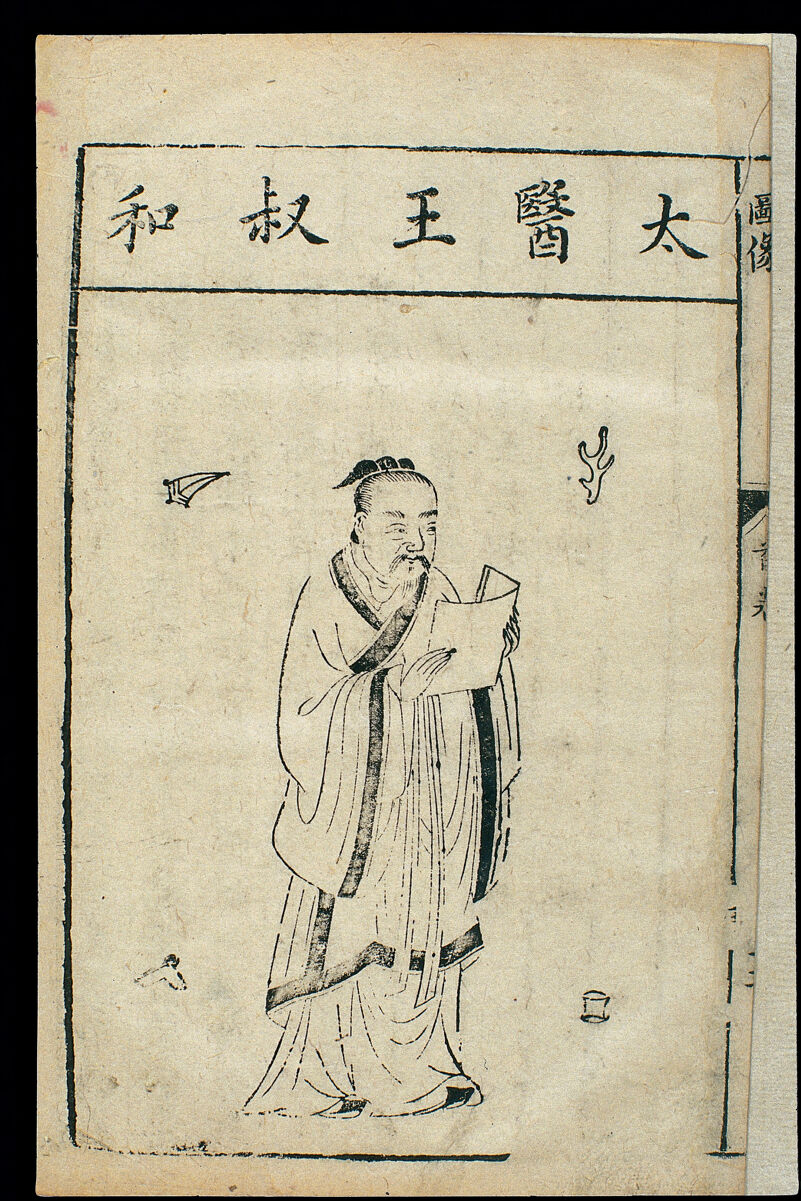 太醫王叔和
圖像